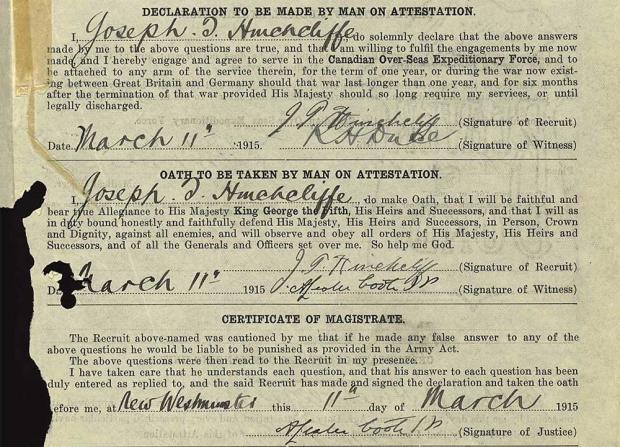 DECLARATION TO BE MADE BY MAN ON ATTESTATION.
I, Joseph. T. Hinchcliffe, do solemnly declare that the above answers
made by me to the above questions are true, and that I am willing to fulfil the engagements by me now
made, and I hereby engage and agree to serve in the Canadian Over-Seas Expeditionary Force, and to
be attached to any arm of the service therein, for the term of one year, or during the war now exist-
ing between Great Britain and Germany should that war last longer than one year, and for six months
after the termination of that war provided His Majesty should so long require my services, or until
legally discharged.
J. T. Hinchcliff (Signature of Recruit)
Date March 11th 1915. (Signature of Witness)
OATH TO BE TAKEN BY MAN ON ATTESTATION.
I, Joseph T. Hinchcliffe, do make Oath, that I will be faithful and
bear true Allegiance to His Majesty King George the Fifth, His Heirs and Successors, and that I will as
in duty bound honestly and faithfully defend His Majesty, His Heirs and Successors, in Person, Crown
and Dignity, against all enemies, and will observe and obey all orders of His Majesty, His Heirs and
Successors, and of all the Generals and Officers set over me. So help me God.
J. T. Hinchcliff (Signature of Recruit)
March 11th 1915 (Signature of Witness)
CERTIFICATE OF MAGISTRATE.
The Recruit above-named was cautioned by me that if he made any false answer to any of the
above questions he would be liable to be punished as provided in the Army Act.
The above questions were then read to the Recruit in my presence.
I have taken care that he understands each question, and that his answer to each question has been
duly entered as replied to, and the said Recruit has made and signed the declaration and taken the oath
before me, at New Westminster this 11th day of March 1915
(Signature of Justice)